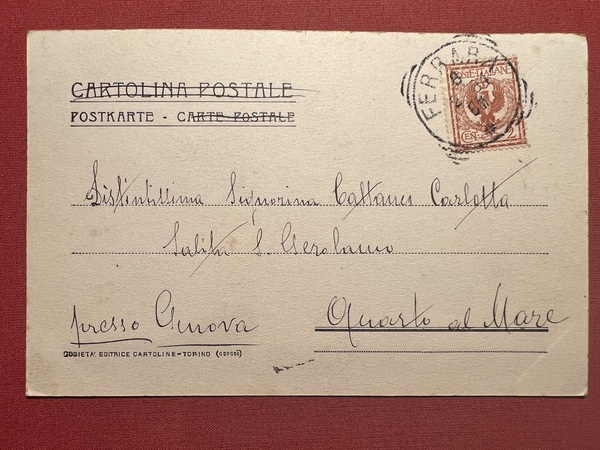 CARTOLINA POSTALE
POSTKARTE - CARTE POSTALE
FERRARA
POSTE ITALIANE
CEN. 2
Distintissima Signorina Cattaneo Carlotta
Salita S. Gerolamo
presso Genova
Quarto al Mare
SOCIETA' EDITRICE CARTOLINE-TORINO (DEPOSÉ)